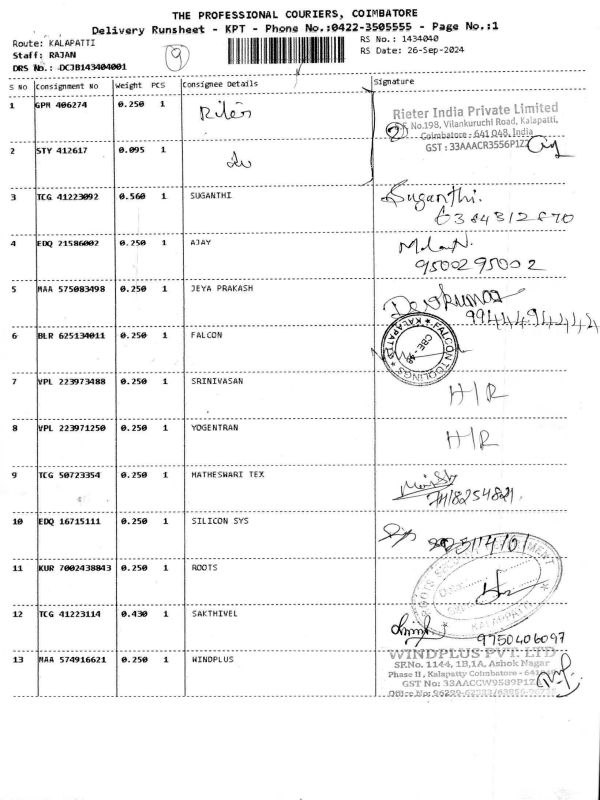 THE PROFESSIONAL COURIERS, COIMBATORE
Delivery Runsheet - KPT - Phone No.:0422-3505555 - Page No.:1
Route: KALAPATTI
RS No.: 1434040
Staff: RAJAN
9
RS Date: 26-Sep-2024
DRS No.: DCJB143404001
S NO Consignment No Weight PCS Consignee Details Signature
1 GPM 406274 0.250 1
Rieter India Private Limited
No.198, Vilankuruchi Road, Kalapatti,
2 Coimbatore - 641 048, India
GST : 33AAACR3556P1Z
2 STY 412617 0.095 1
3 TCG 41223092 0.560 1 SUGANTHI Suganthi.
4 EDQ 21586002 0.250 1 AJAY
9500295002
5 MAA 575083498 0.250 1 JEYA PRAKASH Devkumar
6 BLR 625134011 0.250 1 FALCON
FALCON TOOLINGS KALAPATTI
7 VPL 223973488 0.250 1 SRINIVASAN H/R
8 VPL 223971250 0.250 1 YOGENTRAN H/R
9 TCG 50723354 0.250 1 MATHESWARI TEX
7418254821.
10 EDQ 16715111 0.250 1 SILICON SYS
11 KUR 7002438843 0.250 1 ROOTS
12 TCG 41223114 0.430 1 SAKTHIVEL
9750406097
13 MAA 574916621 0.250 1 WINDPLUS WINDPLUS PVT. LTD
SF.No. 1144, 1B,1A, Ashok Nagar
Phase II, Kalapatty Coimbatore -
GST No: 33AACCW9589P1Z